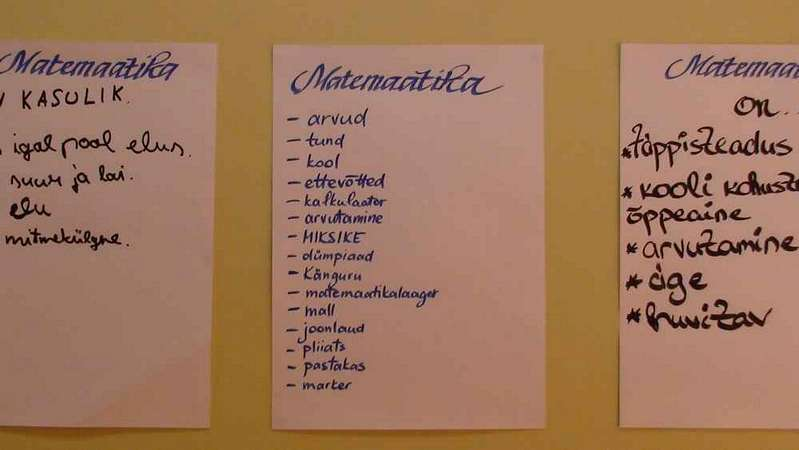 Matemaatika
KASULIK.
igal pool elus.
suur ja lai.
elu
mitmekülgne.
Matemaatika
- arvud
- tund
- kool
- ettevõtted
- kalkulaator
- arvutamine
- MIKSIKE
- olümpiaad
- Känguru
- matemaatikalaager
- mall
- joonlaud
- pliiats
- pastakas
- marker
Matemaat
on...
*täppisteadus
*kooli kohust
õppeaine
*arvutamine
*äge
*huvitav